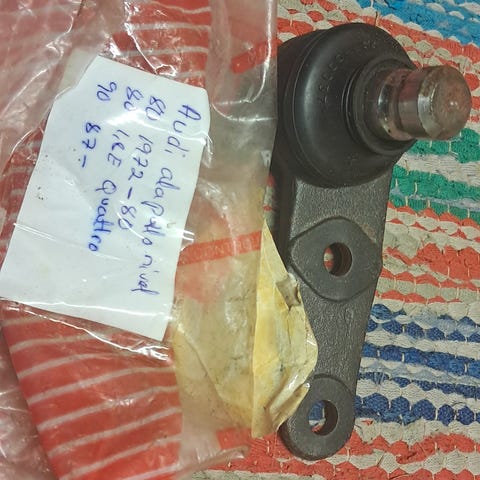 Audi alapallonivel
80 1972-86
80 1.8E Quattro
90 87-